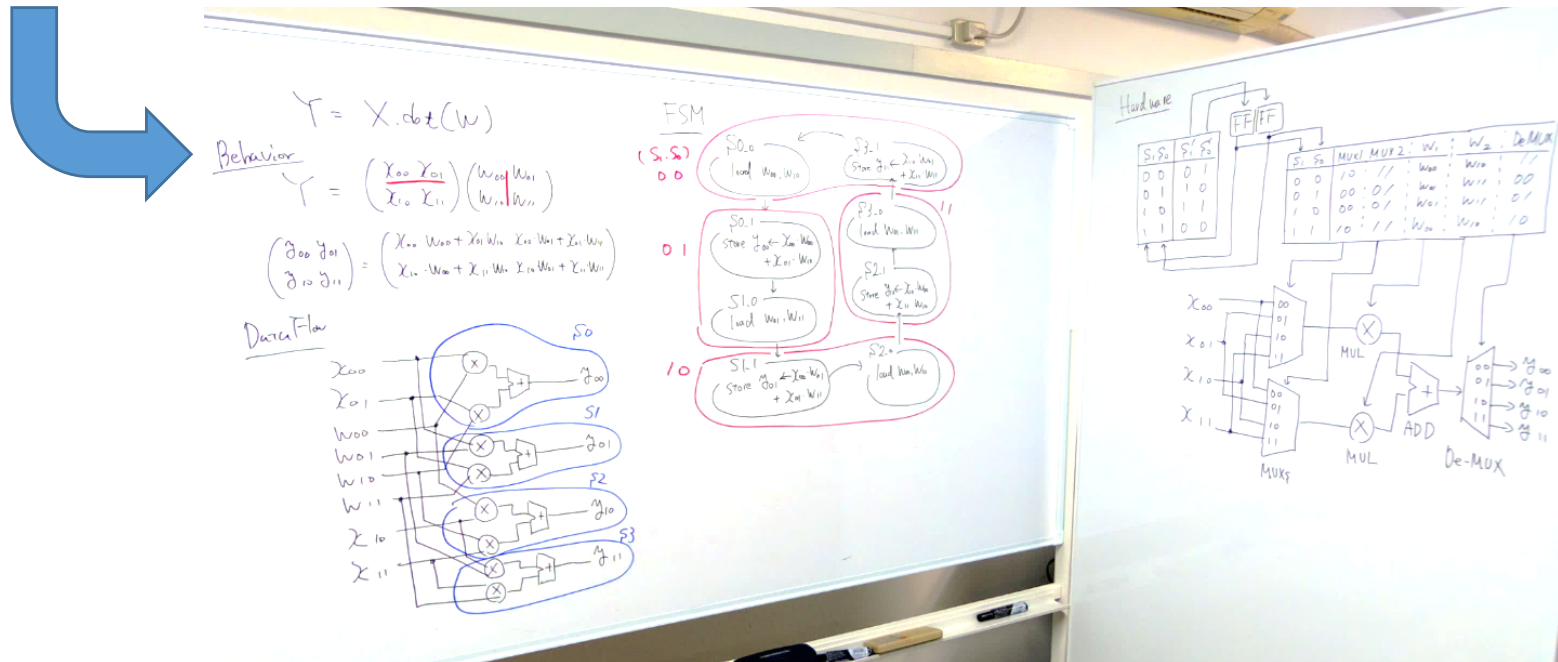 Y = X.dot(W)
Behavior
Y = (x00 x01 (w00 w01
x10 x11) w10 w11)
(y00 y01 = (x00·w00 + x01·w10 x00·w01 + x01·w11
y10 y11) x10·w00 + x11·w10 x10·w01 + x11·w11)
DataFlow
x00
x01
w00
w01
w10
w11
x10
x11
S0
× × + y00
S1
× × + y01
S2
× × + y10
S3
× × + y11
FSM
(S1.S0)
00
S0_0
load w00, w10
S3_1
store y11 ← x10 w01
+ x11 w11
01
S0_1
store y00 ← x00 w00
+ x01 · w10
S1_0
load w01, w11
11
S3_0
load w01, w11
S2_1
store y10 ← x10 w00
+ x11 w10
10
S1_1
store y01 ← x00 · w01
+ x01 w11
S2_0
load w00, w10
Hardware
FF FF
S1 S0 S1' S0'
0 0 0 1
0 1 1 0
1 0 1 1
1 1 0 0
S1 S0 MUX1 MUX2 W1 W2 DeMUX
0 0 10 11 w00 w10 11
0 1 00 01 w00 w11 00
1 0 00 01 w01 w11 01
1 1 10 11 w00 w10 10
x00
x01
x10
x11
00
01
10
11
00
01
10
11
MUXs
× MUL
× MUL
+
ADD
00 y00
01 y01
10 y10
11 y11
De-MUX